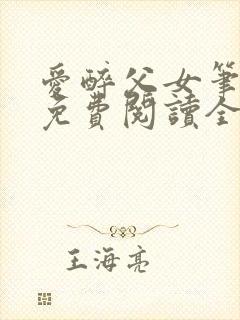 愛醉父女筆
免費閱讀全
王海亮